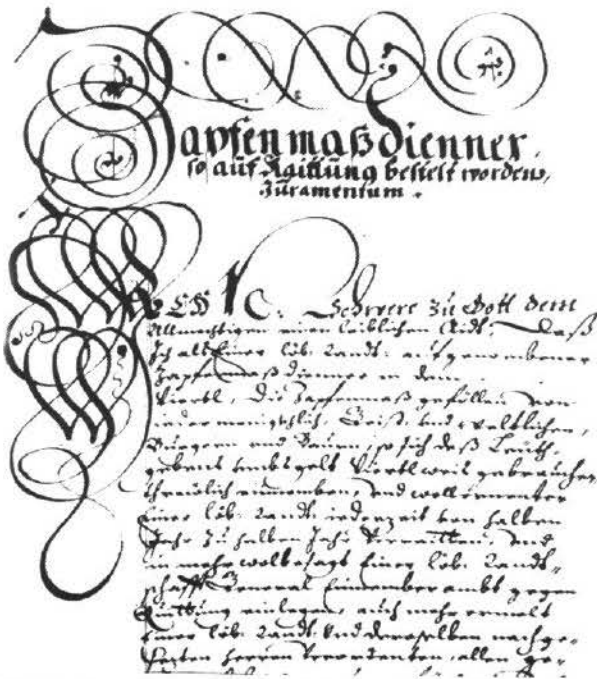 Zapfenmaß dienner,
so auf Raittung bestelt worden,
Juramentum.
Ich N: Schwere zu Gott dem
Allmechtigen einen leiblichen Aidt, daß
Ich als Einer löb: Landt: aufgenombener
Zapfenmaß dienner in dem
Viertl, die Zapfenmaß gefellen von
iedermenigchlich, Geist: und weltlichen,
Burgern und Bauren, so sich deß Leuth-
gebens umbs gelt Viertlweis gebrauchen,
threulich einnemben, und wollermenter
Einer löb: Landt: iederzeit von halben
Jahr zu halben Jahr Verraitten, und
in mehrwolbesagt Einer löb: Landt-
schafft General Einnember ambt gegen
Quittung einlegen, auch mehr ermelt
Einer löb: Landt: und derselben nachge-
sezten herren Verordenten, allen ge-